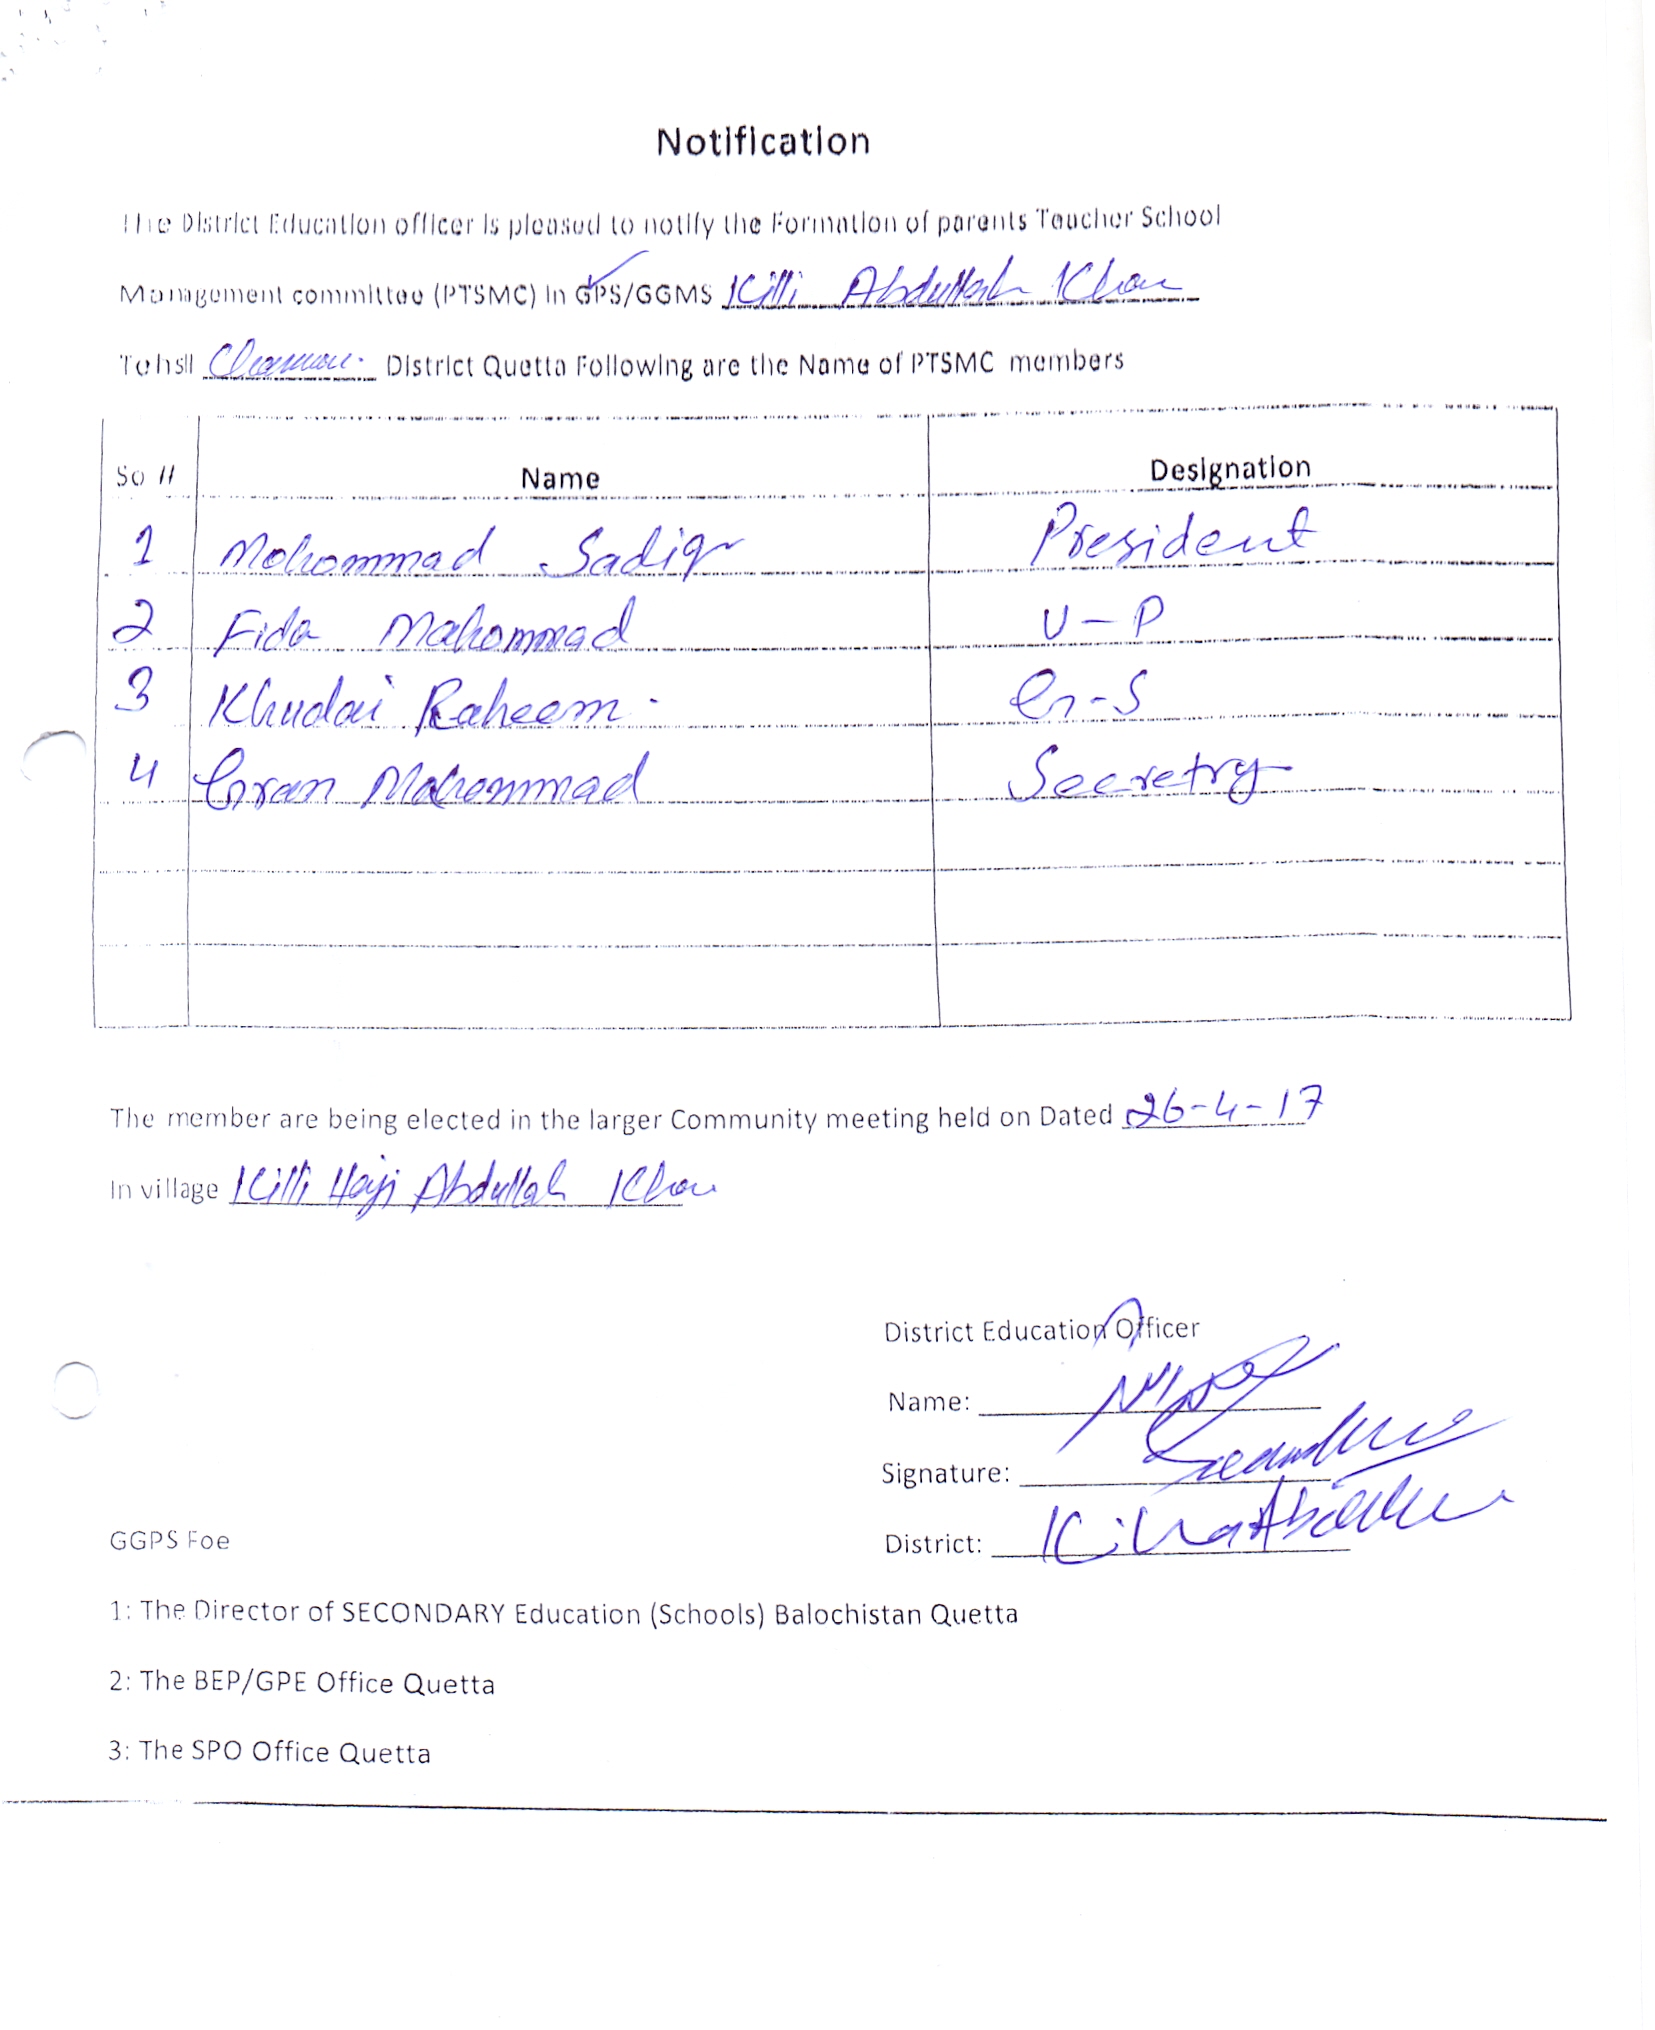 Notification
The District Education officer is pleased to notify the Formation of parents Teacher School
Management committee (PTSMC) In GPS/GGMS Killi Abdullah Khan
Tehsil Chaman. District Quetta Following are the Name of PTSMC members
So # Name Designation
1 Mohommad Sadiq President
2 Fida Mahommad V-P
3 Khudai Raheem G-S
4 Gran Mahommad Secretry
The member are being elected in the larger Community meeting held on Dated 26-4-17
In village Killi Haji Abdullah Khan
District Education Officer
Name:
Signature:
District: Killa Abdullah
GGPS Foe
1: The Director of SECONDARY Education (Schools) Balochistan Quetta
2: The BEP/GPE Office Quetta
3: The SPO Office Quetta